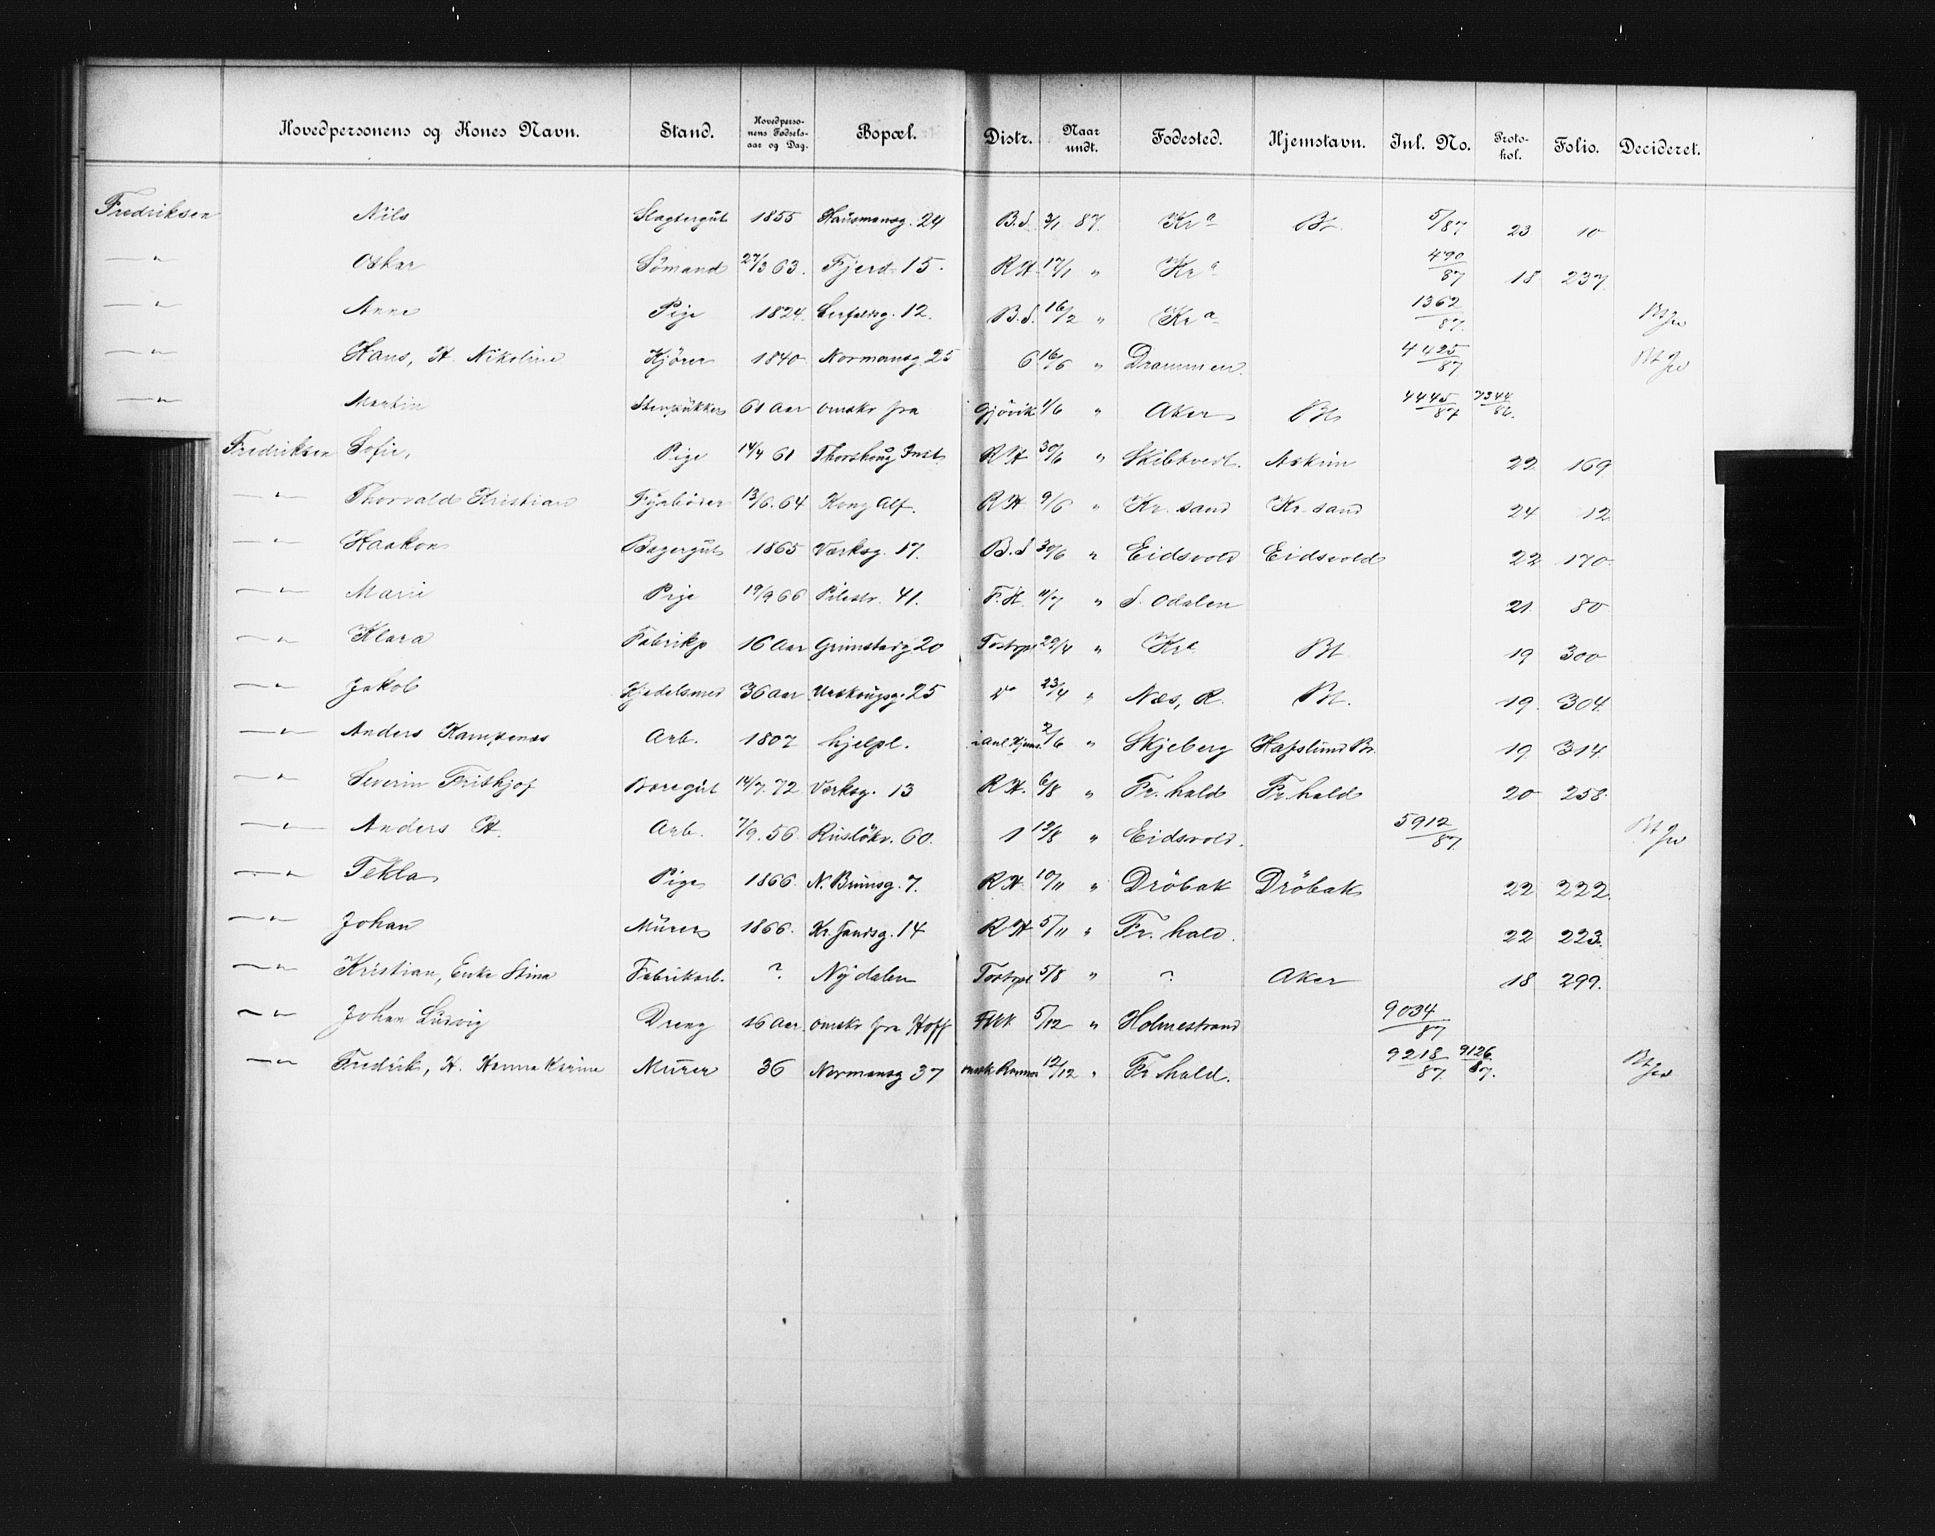 Hovedpersonens og Kones Navn. Stand. Hovedperso-nens Fødsels-aar og Dag. Bopæl. Distr. Naar undt. Fødested. Hjemstavn. Inl. No. Proto-kol. Folio. Decideret.
Fredriksen Nils Slagtergut 1855 Hausmansg. 24 B.S. 3/1 87. Kr a Bt. 5/87 23 10
—"— Oskar Sømand 27/3 63. Fjerd. 15. R.H. 17/1 " Kr a 490/87 18 237
—"— Anne Pige 1824. 12. B.S. 16/2 " Kr a 1362/87
—"— Hans, H. Nikoline Kjører 1840 Normansg. 25 6 16/6 " Drammen. 4425/87
—"— Martin 61 aar omskr fra Gjøvik 1/6 " Aker Bt 4445/87 7344/86.
Fredriksen Sofie, Pige 14/4 61 Thorshoug Inst. R H 30/6 " Skibtvedt. Askim 22 169
—"— Thorvald Kristian Fyrbøder 13/6. 64 Kong Alf. R H 9/6 " Kr. sand Kr. sand 24 12
—"— Haakon Bagergut 1865 Værksg. 17. B. S 30/6 " Eidsvold Eidsvold 22 170
—"— Marie Pige 19/9 66 Pilestr. 41. F. H. 11/7 " S. Odalen 21 80
—"— Klara Fabrikp 16 Aar Grimstadg 20 Tostrpt 29/4 " Kr a Bt 19 300
—"— Jakob Kjedelsmed 36 aar Urskougsg. 25 do 23/4 " Næs, R. Bt. 19 304
—"— Anders Kampenæs Arb. 1807 hjelpl. 2/6 " Skjeberg Hafslund Br. 19 314
—"— Severin Frithjof 14/7. 72 Værksg. 13 R H. 6/8 " Fr. hald Fr. hald 20 258
—"— Anders H. Arb. 7/9. 56. Rusløkv. 60. 1 12/8 " Eidsvold. 5912/87
—"— Tekla Pige 1866 N. Brunsg. 7. R H. 10/11 " Drøbak Drøbak 22 222
—"— Johan Murer 1866. Kr. Sandsg. 14 R H 5/11 " Fr. hald. 22 223.
—"— Kristian, Enke Stina Fabrikarb. ? Nydalen Tostrpt 5/8 " ? Aker 18 299.
—"— Johan Ludvig Dreng 16 Aar. omskr fra Hoff 5/12 " Holmestrand 9034/87
—"— Fredrik, H. Hanna Karine Murer 36 Normansg 37 12/12 " Fr hald. 9218/87 9126/87.